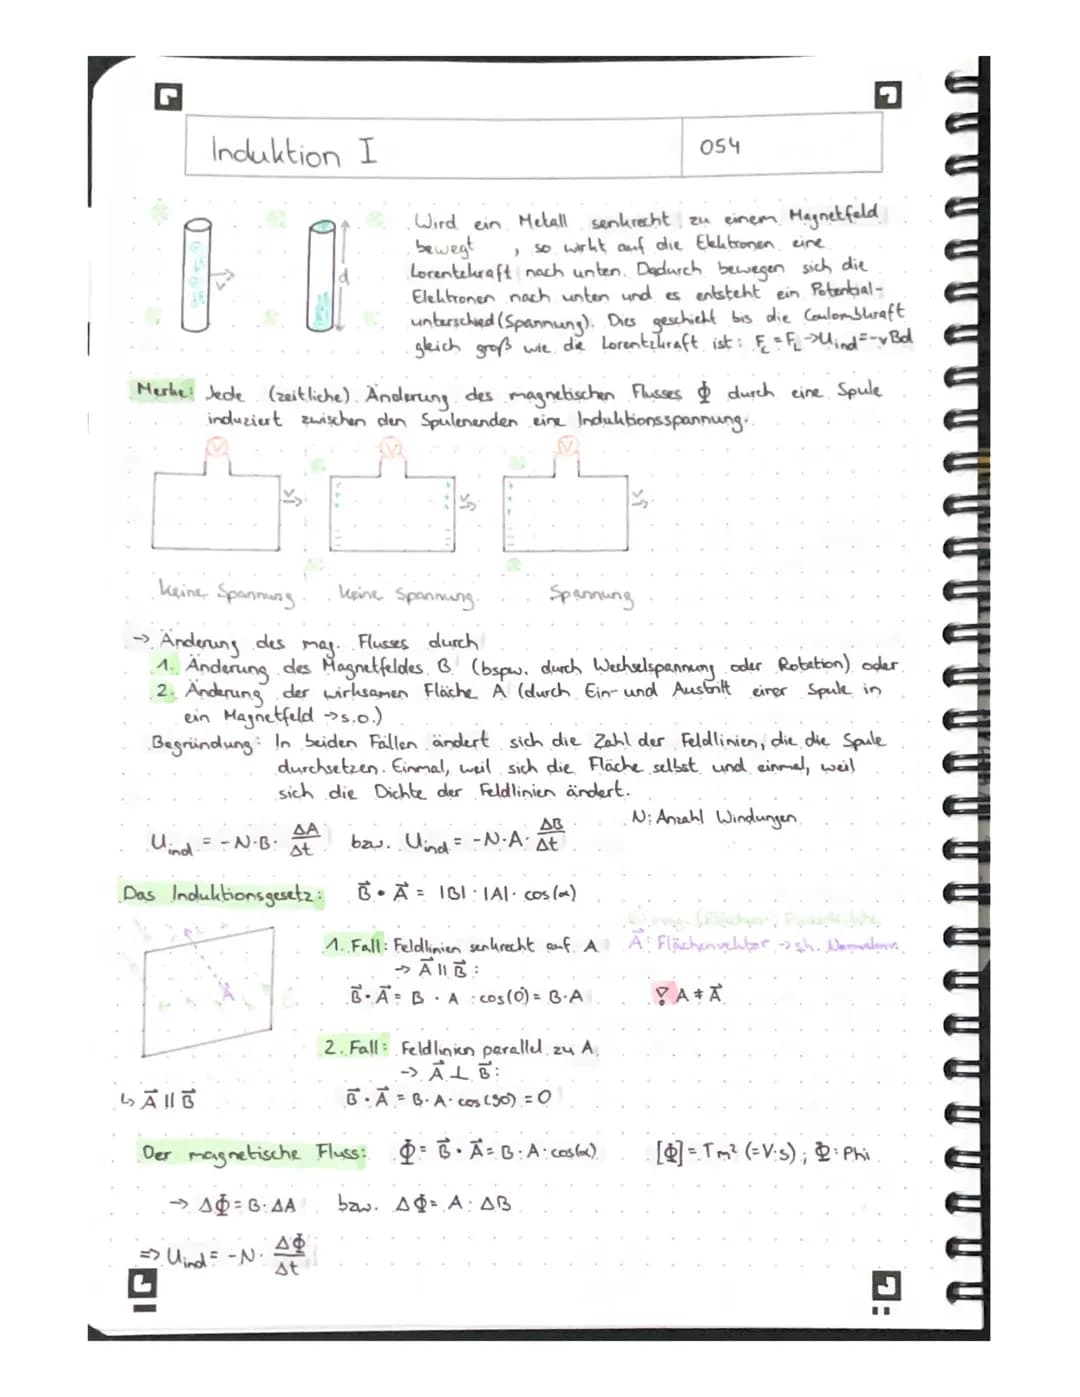 Induktion I
054
Wird ein Metall senkrecht zu einem Magnetfeld
bewegt, so wirkt auf die Elektronen eine
Lorentzkraft nach unten. Dadurch bewegen sich die
Elektronen nach unten und es entsteht ein Potential-
unterschied (Spannung). Dies geschieht bis die Coulombkraft
gleich groß wie die Lorentzkraft ist: F_C = F_L → U_ind = -vBd
v
d
Merke: Jede (zeitliche) Änderung des magnetischen Flusses Φ durch eine Spule
induziert zwischen den Spulenenden eine Induktionsspannung.
V V V
v v v
keine Spannung keine Spannung Spannung
→ Änderung des mag. Flusses durch
1. Änderung des Magnetfeldes B (bspw. durch Wechselspannung oder Rotation) oder
2. Änderung der wirksamen Fläche A (durch Ein- und Austritt einer Spule in
ein Magnetfeld → s.o.)
Begründung: In beiden Fällen ändert sich die Zahl der Feldlinien, die die Spule
durchsetzen. Einmal, weil sich die Fläche selbst und einmal, weil
sich die Dichte der Feldlinien ändert.
N: Anzahl Windungen
U_ind = -N·B· ΔA/Δt bzw. U_ind = -N·A· ΔB/Δt
Das Induktionsgesetz: B⃗ • A⃗ = |B| · |A| · cos(α)
1. Fall: Feldlinien senkrecht auf A
A⃗: Flächenvektor → sh.
→ A⃗ || B⃗:
B⃗ • A⃗ = B · A · cos(0) = B·A
A ≠ A⃗
A
2. Fall: Feldlinien parallel zu A
→ A⃗ ⊥ B⃗:
↳ A⃗ || B⃗
B⃗ • A⃗ = B·A·cos(90) = 0
Der magnetische Fluss: Φ = B⃗ • A⃗ = B·A·cos(α) [Φ] = Tm² (=V·s); Φ: Phi
→ ΔΦ = B·ΔA bzw. ΔΦ = A·ΔB
⇒ U_ind = -N· ΔΦ/Δt